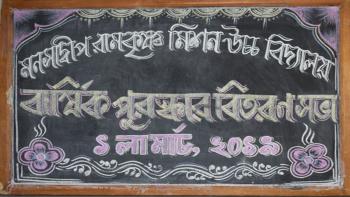 মনসাদ্বীপ রামকৃষ্ণ মিশন উচ্চ বিদ্যালয়
বার্ষিক পুরস্কার বিতরণ সভা
১লা মার্চ, ২০১৯